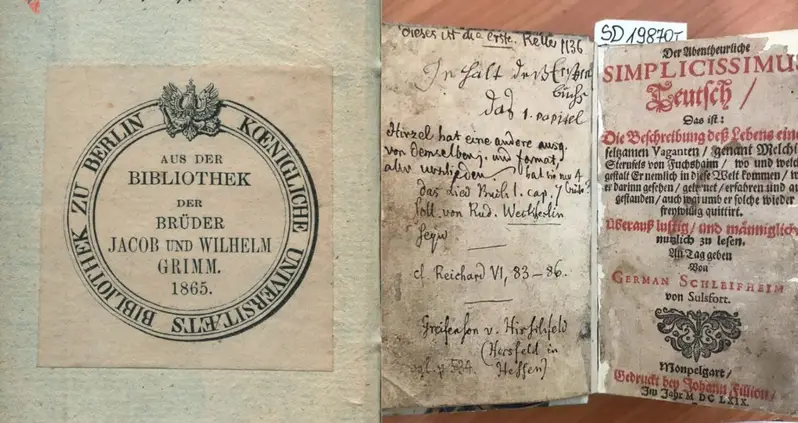 KŒNIGLICHE UNIVERSITÆTS BIBLIOTHEK ZU BERLIN
AUS DER
BIBLIOTHEK
DER
BRÜDER
JACOB UND WILHELM
GRIMM.
1865.
dieses ist die erste. Keller 1136
Inhalt deß Ersten
buchs
das 1. capitel
Hirzel hat eine andere ausg.
von demselben j. und format,
aber verschieden
das Lied Buch 1. cap. 7
soll von Rud. Weckherlin
seyn
cf. Reichard VI, 83-86.
Greifenson v. Hirschfeld
(Hersfeld in
Hessen)
SD 19870
Der Abentheurliche
SIMPLICISSIMUS
Teutsch /
Das ist:
Die Beschreibung deß Lebens eine
seltzamen Vaganten / genant Melchi
Sternfels von Fuchshaim / wo und welch
gestalt Er nemlich in diese Welt kommen / w
er darinn gesehen / gelernet / erfahren und au
gestanden / auch warumb er solche wieder
freywillig quittirt.
Überauß lustig / und männiglich
nutzlich zu lesen.
An Tag geben
Von
GERMAN SCHLEIFHEIM
von Sulsfort.
Monpelgart /
Gedruckt bey Johann Fillion /
Im Jahr M DC LXIX.